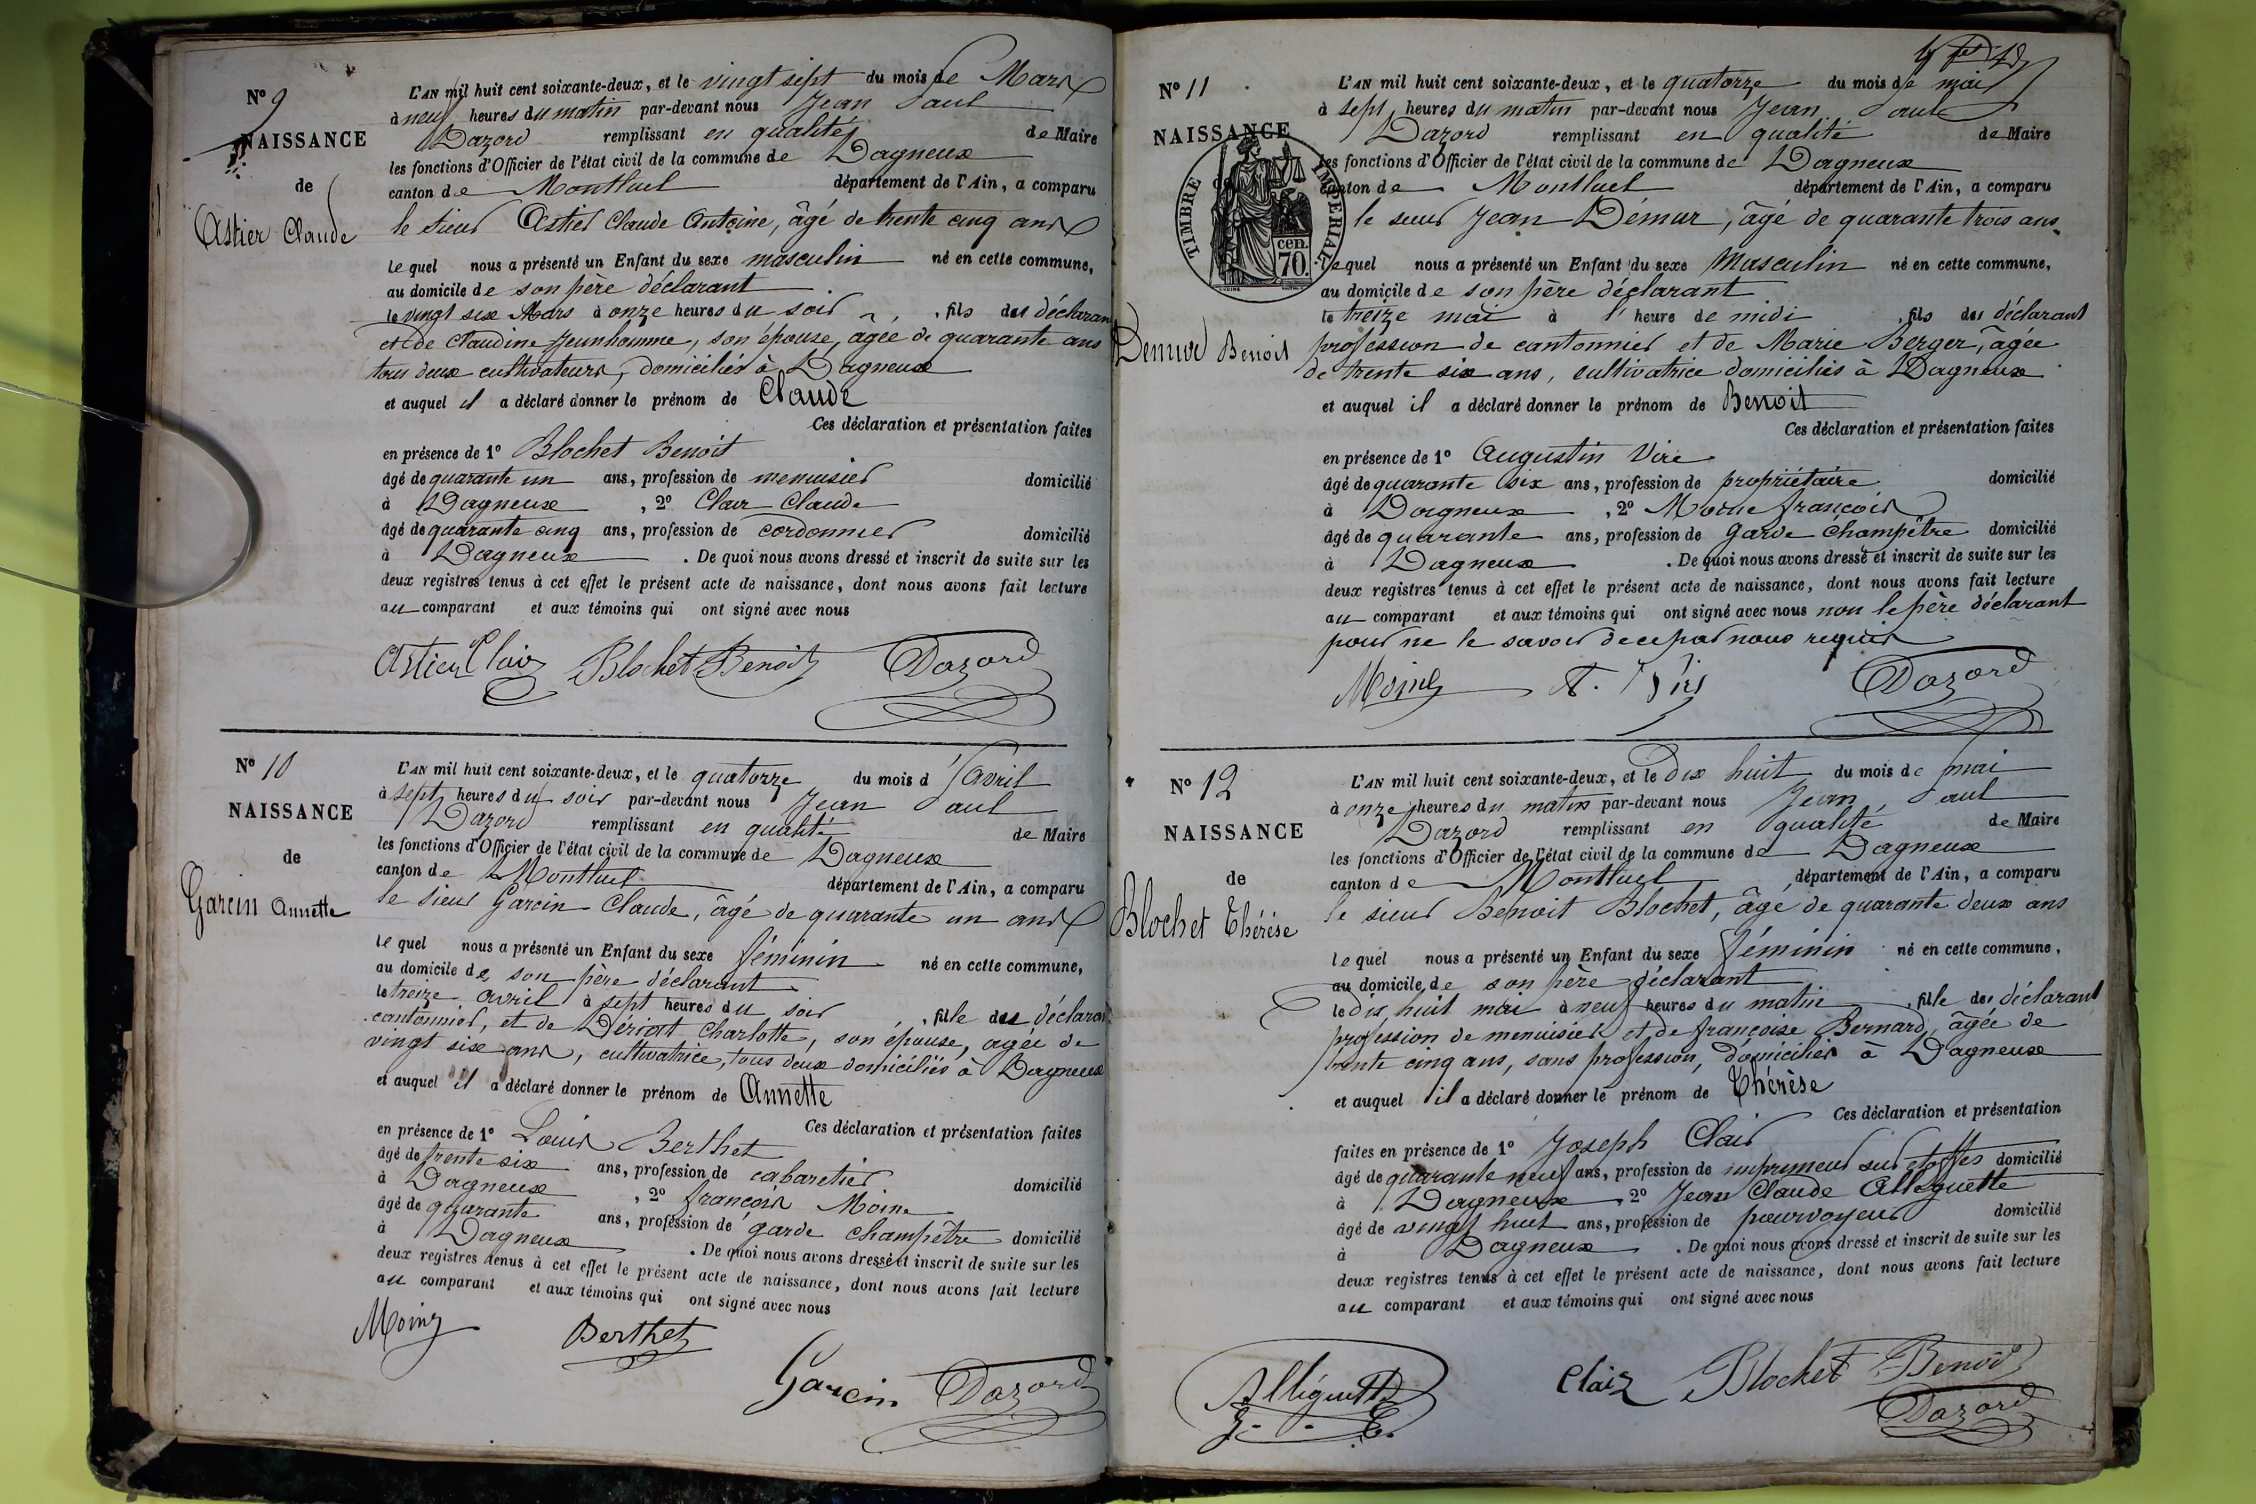 N° 9
NAISSANCE
de
Astier Claude
L'AN mil huit cent soixante-deux, et le vingt sept du mois de Mars
à neuf heures du matin par-devant nous Jean Paul
Dazord remplissant en qualité de Maire
les fonctions d'Officier de l'état civil de la commune de Dagneux
canton de Montluel département de l'Ain, a comparu
le sieur Astier Claude Antoine, âgé de trente cinq ans
lequel nous a présenté un Enfant du sexe masculin né en cette commune,
au domicile de son père déclarant
le vingt six Mars à onze heures du soir, fils des déclarant
et de Claudine Jeunhomme, son épouse, agée de quarante ans
tous deux cultivateurs, domiciliés à Dagneux
et auquel il a déclaré donner le prénom de Claude
Ces déclaration et présentation faites
en présence de 1° Blochet Benoit
âgé de quarante un ans, profession de menuisier domicilié
à Dagneux, 2° Clair Claude
âgé de quarante cinq ans, profession de cordonnier domicilié
à Dagneux. De quoi nous avons dressé et inscrit de suite sur les
deux registres tenus à cet effet le présent acte de naissance, dont nous avons fait lecture
au comparant et aux témoins qui ont signé avec nous
Astier Clair Blochet Benoit Dazord
N° 10
NAISSANCE
de
Garcin Annette
L'AN mil huit cent soixante-deux, et le quatorze du mois d'avril
à sept heures du soir par-devant nous Jean Paul
Dazord remplissant en qualité de Maire
les fonctions d'Officier de l'état civil de la commune de Dagneux
canton de Montluel département de l'Ain, a comparu
le sieur Garcin Claude, âgé de quarante un ans
lequel nous a présenté un Enfant du sexe féminin né en cette commune,
au domicile de son père déclarant
le treize avril à sept heures du soir, fille des déclarant
cantonnier, et de Dériat Charlotte, son épouse, agée de
vingt six ans, cultivatrice, tous deux domiciliés à Dagneux
et auquel il a déclaré donner le prénom de Annette
Ces déclaration et présentation faites
en présence de 1° Louis Berthet
âgé de trente six ans, profession de cabaretier domicilié
à Dagneux, 2° françois Moine
âgé de quarante ans, profession de garde champêtre domicilié
à Dagneux. De quoi nous avons dressé et inscrit de suite sur les
deux registres tenus à cet effet le présent acte de naissance, dont nous avons fait lecture
au comparant et aux témoins qui ont signé avec nous
Moine Berthet
Garcin Dazord
N° 11
NAISSANCE
TIMBRE IMPERIAL
cen.
70.
Demur Benoit
L'AN mil huit cent soixante-deux, et le quatorze du mois de mai
à sept heures du matin par-devant nous Jean Paul
Dazord remplissant en qualité de Maire
les fonctions d'Officier de l'état civil de la commune de Dagneux
canton de Montluel département de l'Ain, a comparu
le sieur Jean Démur, âgé de quarante trois ans
lequel nous a présenté un Enfant du sexe Masculin né en cette commune,
au domicile de son père déclarant
le treize mai à l'heure de midi, fils des déclarant
profession de cantonnier et de Marie Berger, âgée
de trente six ans, cultivatrice domiciliés à Dagneux
et auquel il a déclaré donner le prénom de Benoit
Ces déclaration et présentation faites
en présence de 1° Augustin Vire
âgé de quarante six ans, profession de propriétaire domicilié
à Dagneux, 2° Moine françois
âgé de quarante ans, profession de Garde Champêtre domicilié
à Dagneux. De quoi nous avons dressé et inscrit de suite sur les
deux registres tenus à cet effet le présent acte de naissance, dont nous avons fait lecture
au comparant et aux témoins qui ont signé avec nous non le père déclarant
pour ne le savoir de ce par nous requis
Moine Dazord
N° 12
NAISSANCE
de
Blochet Thérèse
L'AN mil huit cent soixante-deux, et le Dix huit du mois de mai
à onze heures du matin par-devant nous Jean Paul
Dazord remplissant en qualité de Maire
les fonctions d'Officier de l'état civil de la commune de Dagneux
canton de Montluel département de l'Ain, a comparu
le sieur Benoit Blochet, âgé de quarante deux ans
lequel nous a présenté un Enfant du sexe féminin né en cette commune,
au domicile de son père déclarant
le dix huit mai à neuf heures du matin, fille des déclarant
profession de menuisier et de françoise Bernard, âgée de
trente cinq ans, sans profession, domiciliés à Dagneux
et auquel il a déclaré donner le prénom de Thérèse
Ces déclaration et présentation
faites en présence de 1° Joseph Clair
âgé de quarante neuf ans, profession de imprimeur sur étoffes domicilié
à Dagneux, 2° Jean Claude Alléguette
âgé de vingt huit ans, profession de pourvoyeur domicilié
à Dagneux. De quoi nous avons dressé et inscrit de suite sur les
deux registres tenus à cet effet le présent acte de naissance, dont nous avons fait lecture
au comparant et aux témoins qui ont signé avec nous
Clair Blochet Benoit
Dazord